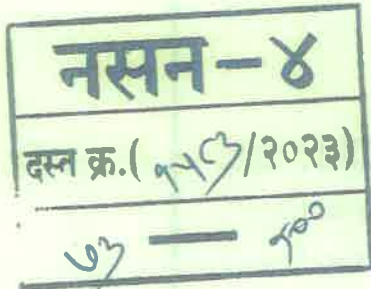 नसन-४
दस्त क्र.( १५८३/२०२३)
७३ — १००